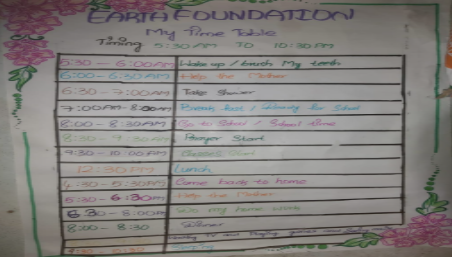 EARTH FOUNDATION
My Time Table
Timing 5:30 AM TO 10:30 PM
5:30 - 6:00 AM Wake up / brush My teeth
6:00 - 6:30 AM Help the Mother
6:30 - 7:00 AM Take Shower
7:00 AM - 8:00 AM Break fast /
8:00 - 8:30 AM Go to School / School time
8:30 - 9:30 AM Prayer Start
9:30 - 10:00 AM
12:30 PM Lunch
4:30 - 5:30 PM Come back to home
5:30 - 6:30 PM Help the Mother
6:30 - 8:00 PM my home work
8:00 - 8:30 Dinner